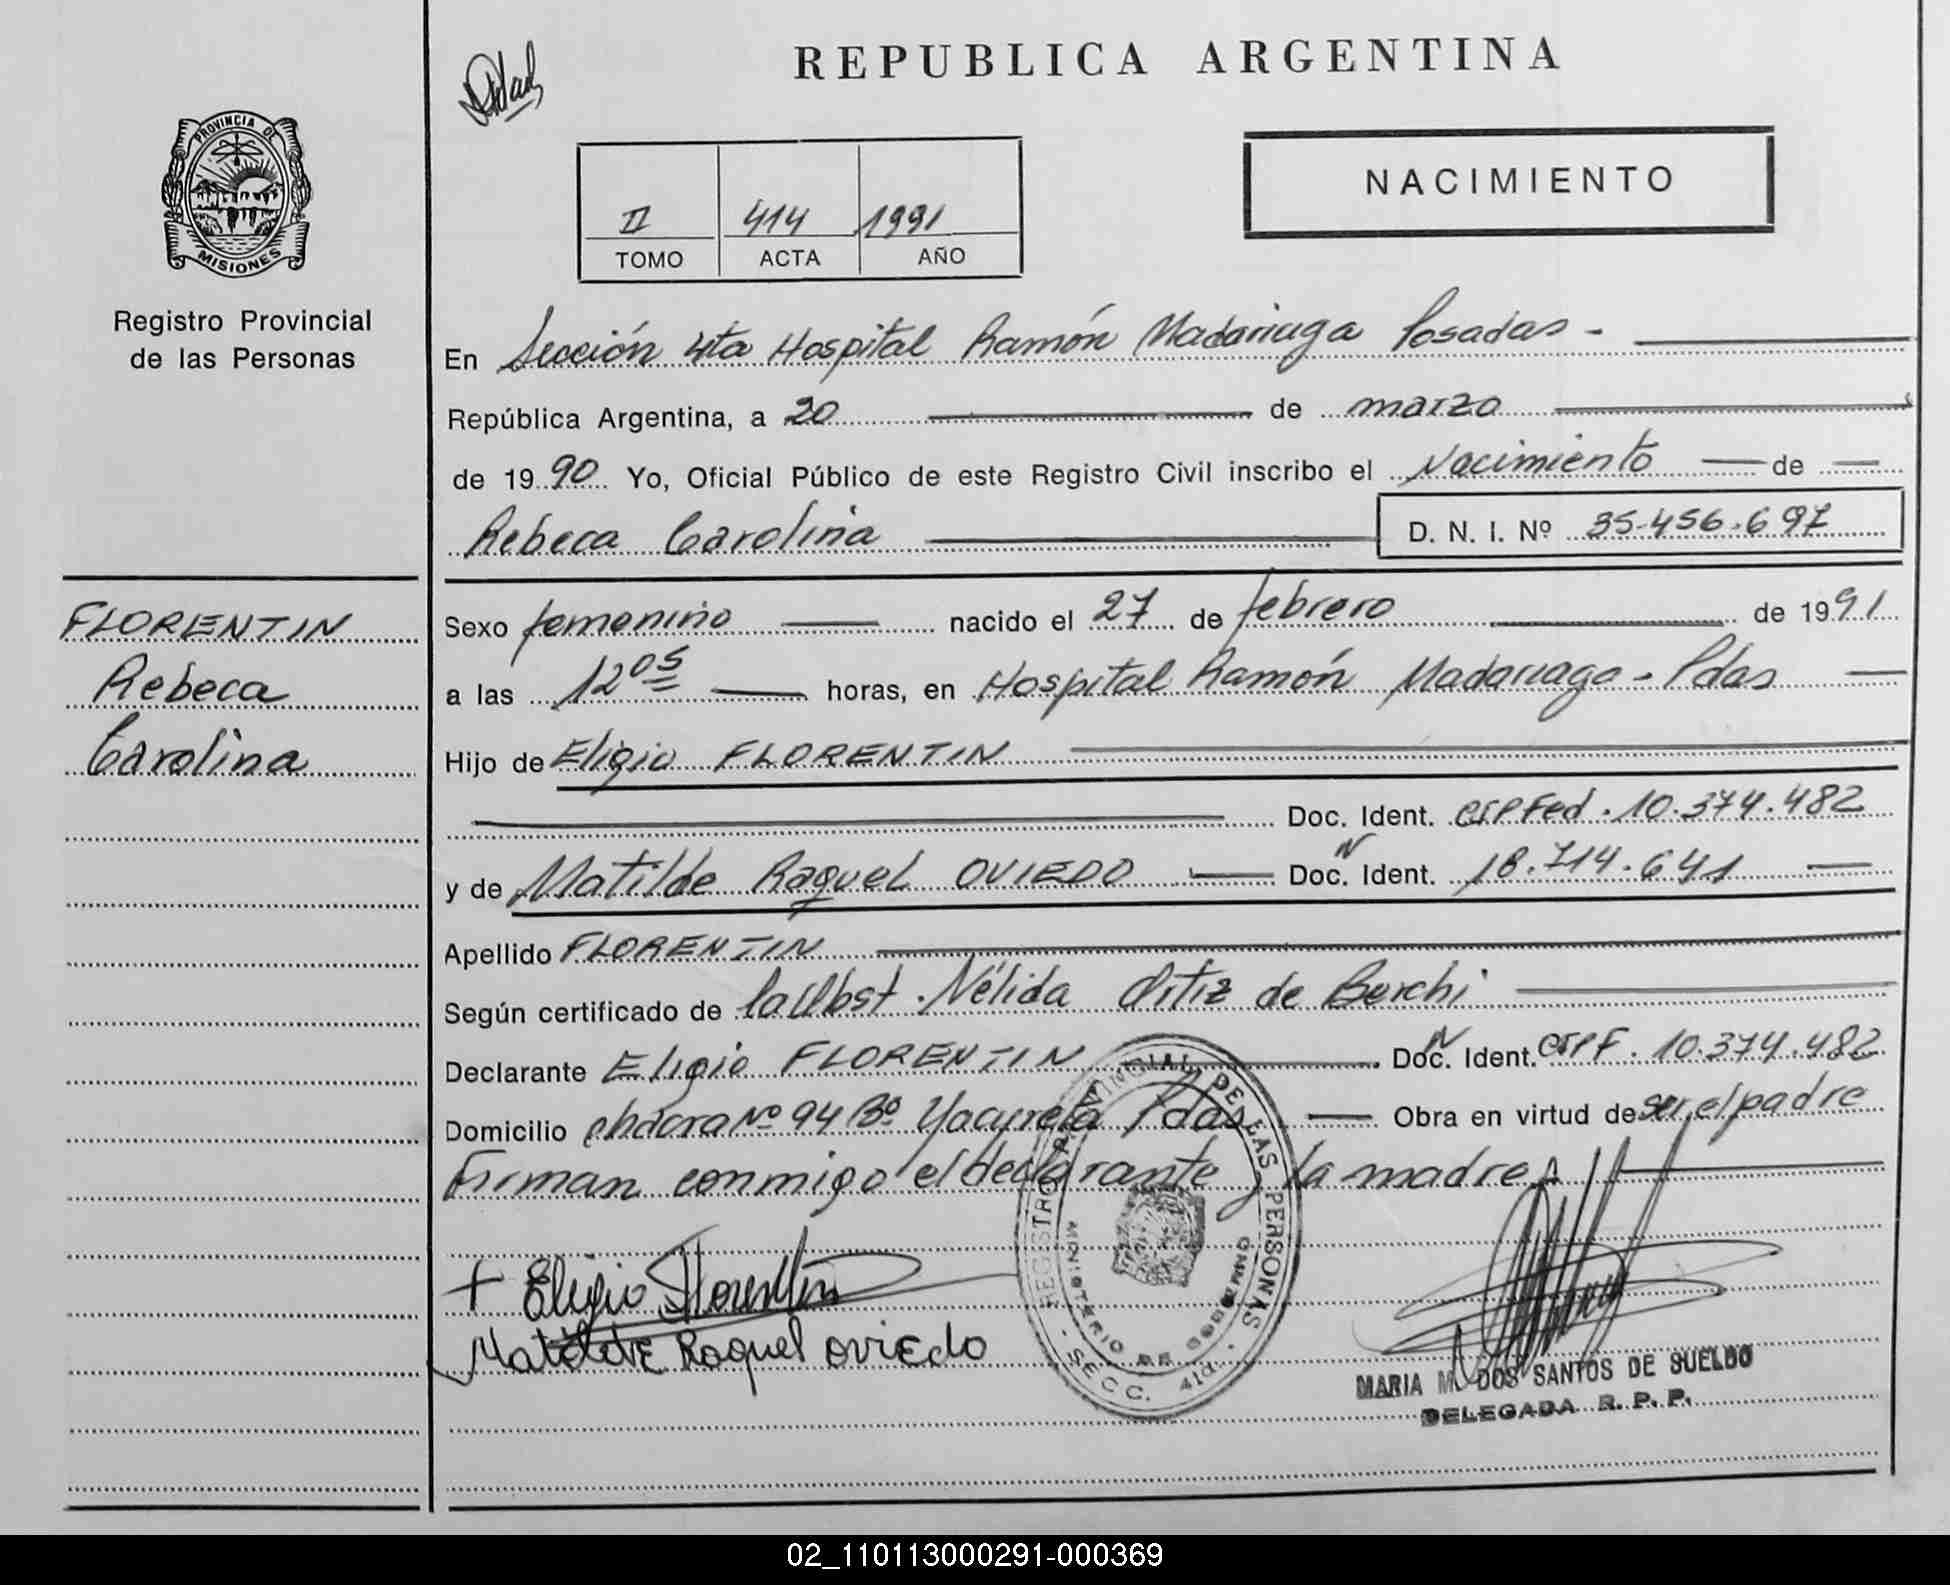 REPUBLICA ARGENTINA
PROVINCIA DE
MISIONES
Registro Provincial
de las Personas
II 414 1991
TOMO ACTA AÑO
NACIMIENTO
En Sección 4ta Hospital Ramón Madariaga Posadas -
República Argentina, a 20 de marzo
de 1990 Yo, Oficial Público de este Registro Civil inscribo el Nacimiento de
Rebeca Carolina D. N. I. Nº 35.456.697
FLORENTIN
Rebeca
Carolina
Sexo femenino nacido el 27 de febrero de 1991
a las 12 05 horas, en Hospital Ramón Madariaga - Pdas
Hijo de Eligio FLORENTIN
Doc. Ident. CIPFed. 10.374.482
y de Matilde Raquel OVIEDO Doc. N Ident. 18.714.641
Apellido FLORENTIN
Según certificado de la Obst. Nélida Ortiz de Berchi
Declarante Eligio FLORENTIN Doc. N Ident. CIPF. 10.374.482
Domicilio chacra Nº 94 Bº Yacyreta Pdas Obra en virtud de ser el padre
Firman conmigo el declarante y la madre
+ Eligio Florentin
Matilde Raquel oviedo
REGISTRO PROVINCIAL DE LAS PERSONAS
MINISTERIO DE GOBIERNO
- SECC. 4ta -
MARIA M. DOS SANTOS DE SUELDO
DELEGADA R. P. P.
02_110113000291-000369